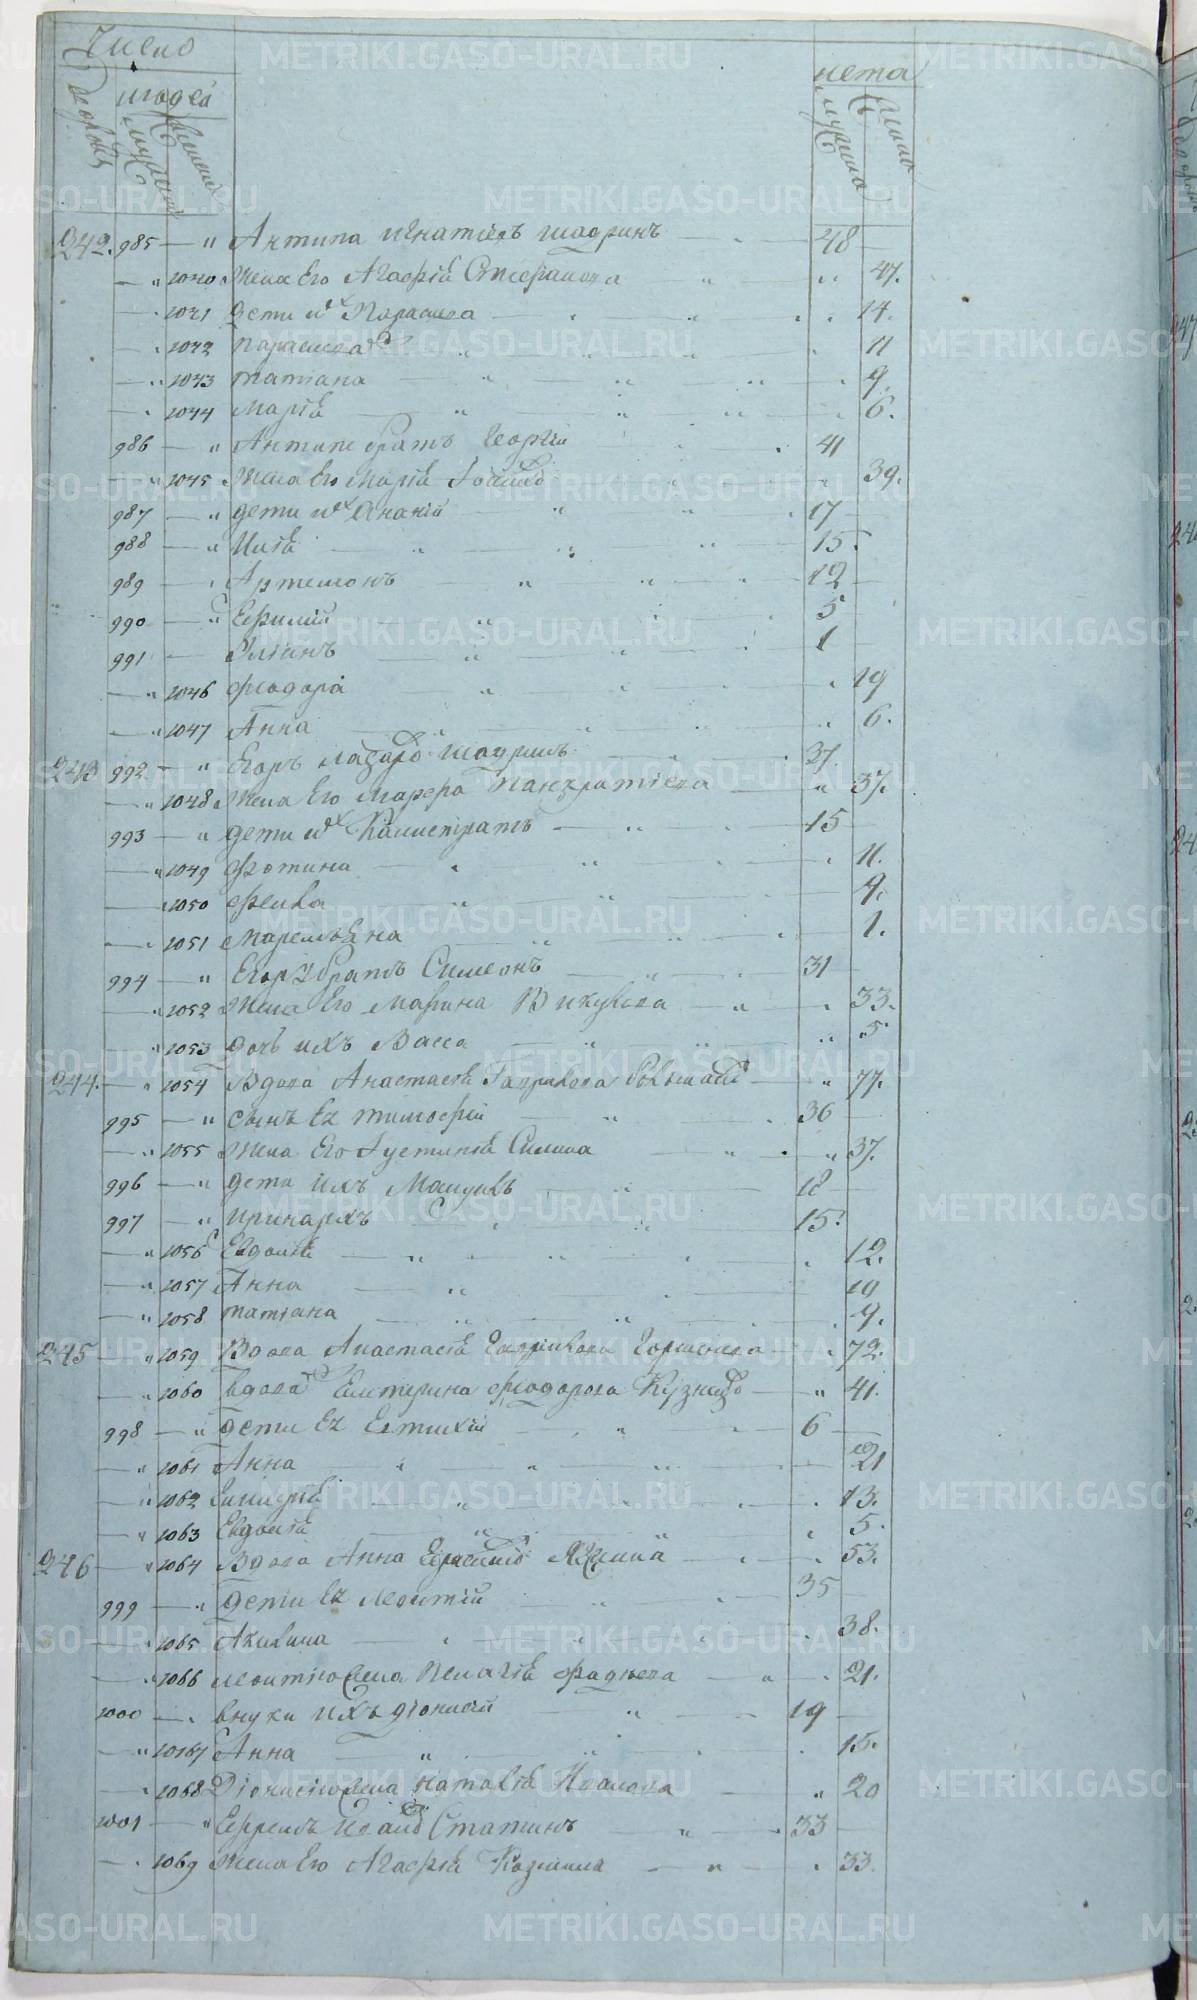 Число
людей
лета
дворовъ мужеска женска мужска женска
242. 985 — " Антипа Игнатіевъ Шадринъ 48
" 1040 Жена Его Агафія Стефанова 47.
1041 дети их Параскева 14.
1042 Параскева 11
1043 татіана 9.
1044 Марія 6.
986 — " Антипе братъ Георгій 41
1045 Жена Его Марія 39.
987 — " дети их Ананій 17
988 — " Илія 15.
989 — Артемонъ 12
990 — " Ефимій 5
991 — Уліанъ 1
" 1046 Феодора 19
1047 Анна 6.
243 992 — " Егоръ Лазарев Шадринъ 37.
" 1048 Жена Его Марфа Панкратіева 37.
993 — " дети их Калистратъ 15
1049 Фотина 11.
1050 Фекла 4.
1051 Маремьяна 1.
994 — " Егору братъ Симеонъ 31
1052 Жена Его Марина Викулова 33.
1053 дочь ихъ Васса 5
244. 1054 Вдова Анастасія Гаврилова 77.
995 — " сынъ Ея тимофій 36
1055 Жена Его Іустинія Силина 37.
996 — " дети ихъ Мануилъ 18
997 — " Иринархъ 15.
" 1056 Евдокія 12.
" 1057 Анна 10
" 1058 татіана 9.
245 1059 Вдова Анастасія Гаврилова Горшкова 72.
1060 вдова Екатерина Феодорова Кузнецов 41.
998 — " дети Ея Евтихій 6
" 1061 Анна 21
1062 13.
1063 Евдокія 5.
246 1064 Вдова Анна Герасимов 53.
999 — " Дети Ея Леонтій 35
1065 Акилина 38.
1066 Леонтіо жена Пелагія Фадеева 21.
1000 — внуки Ихъ Діонисій 19
" 10167 Анна 15.
1068 Діонисію жена Наталія Иванова 20
1001 — " Ефремъ Иванов Статинъ 33
1069 Жена Его Агафія Козмина 33.
METRIKI.GASO-URAL.RU